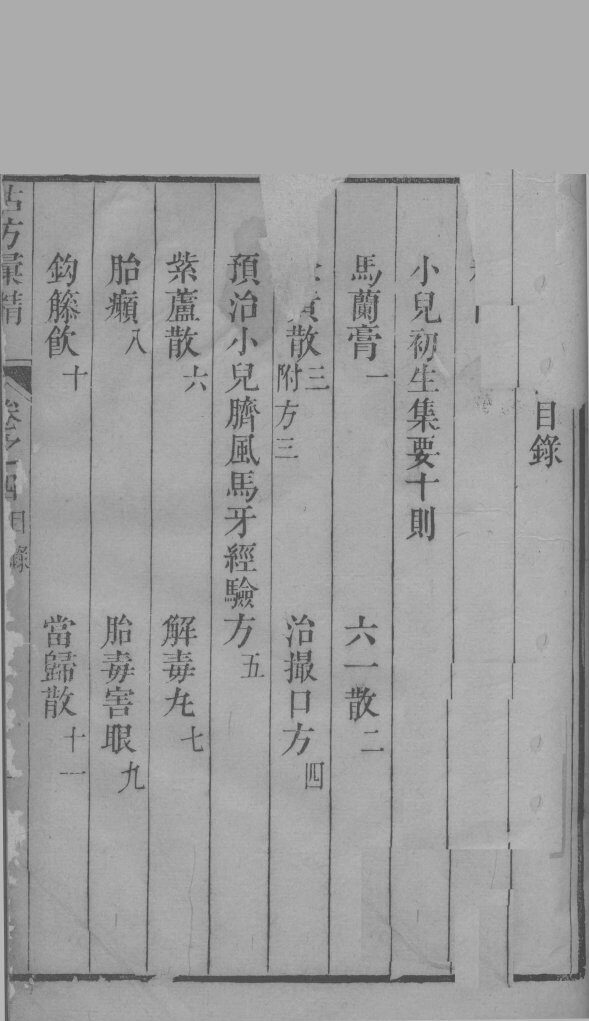 目錄
小兒初生集要十則
馬蘭膏一 六一散二
黃散三附方三 治撮口方四
預治小兒臍風馬牙經驗方五
紫蘆散六 解毒丸七
胎癩八 胎毒害眼九
鈎籐飲十 當歸散十一
古方彙精 卷之四 目錄